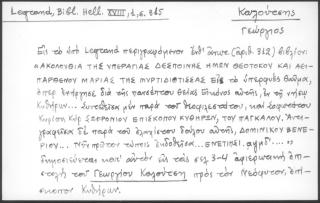 Legrand, Bibl. Hell. XVIII, 1, σ. 315
Καλούτσης
Γεώργιος
Εἰς τὸ ὑπὸ Legrand περιγραφόμενον ὑπ' (ἀρ. 312) βιβλίον
"ΑΚΟΛΟΥΘΙΑ ΤΗΣ ΥΠΕΡΑΓΙΑΣ ΔΕΣΠΟΙΝΗΣ ΗΜΩΝ ΘΕΟΤΟΚΟΥ ΚΑΙ ΑΕΙ-
ΠΑΡΘΕΝΟΥ ΜΑΡΙΑΣ ΤΗΣ ΜΥΡΤΙΔΙΩΤΙΣΣΗΣ εἰς τὸ ὑπερφυὲς θαῦμα,
ὅπερ ἐνήργησε διὰ τῆς πανσέπτου θείας εἰκόνος αὐτῆς, ἐν τῇ νήσῳ
Κυθήρων... συντεθεῖσα μὲν παρὰ τοῦ θεοφιλεστάτου, καὶ σοφωτάτου
Κυρίου Κυρ ΣΩΦΡΟΝΙΟΥ ΕΠΙΣΚΟΠΟΥ ΚΥΘΗΡΩΝ, ΤΟΥ ΠΑΓΚΑΛΟΥ. Ἀντι-
γραφεῖσα δὲ παρὰ τοῦ ἐλαχίστου δούλου αὐτῆς, ΔΟΜΙΝΙΚΟΥ ΒΕΝΕ-
ΡΙΟΥ... Νῦν πρῶτον τύποις ἐκδοθεῖσα... ΕΝΕΤΙΗΣΙ. αψμδ'...."
δημοσιεύεται κατ' αὐτὸν εἰς τὰς σελ. 3-4 ἀφιερωτικὴ ἐπι-
στολὴ τοῦ Γεωργίου Καλούτση πρὸς τὸν Νεόφυτον, ἐπί-
σκοπον Κυθήρων.